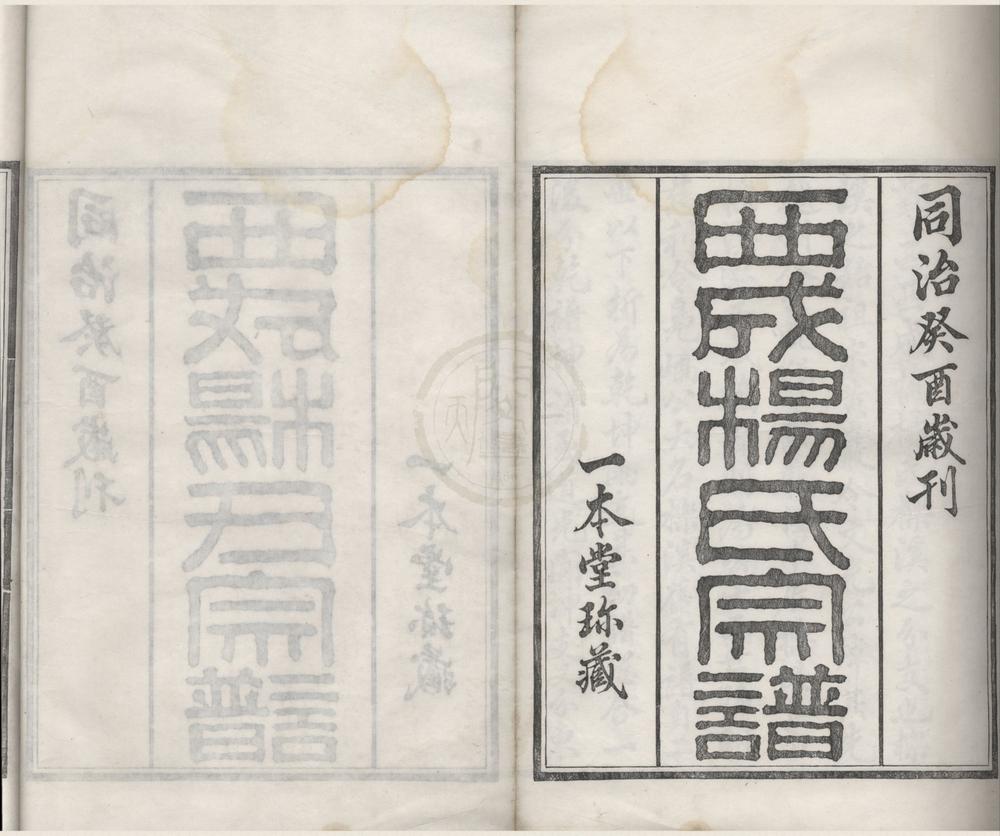 同治癸酉歲刊
西成楊氏宗譜
一本堂珎藏